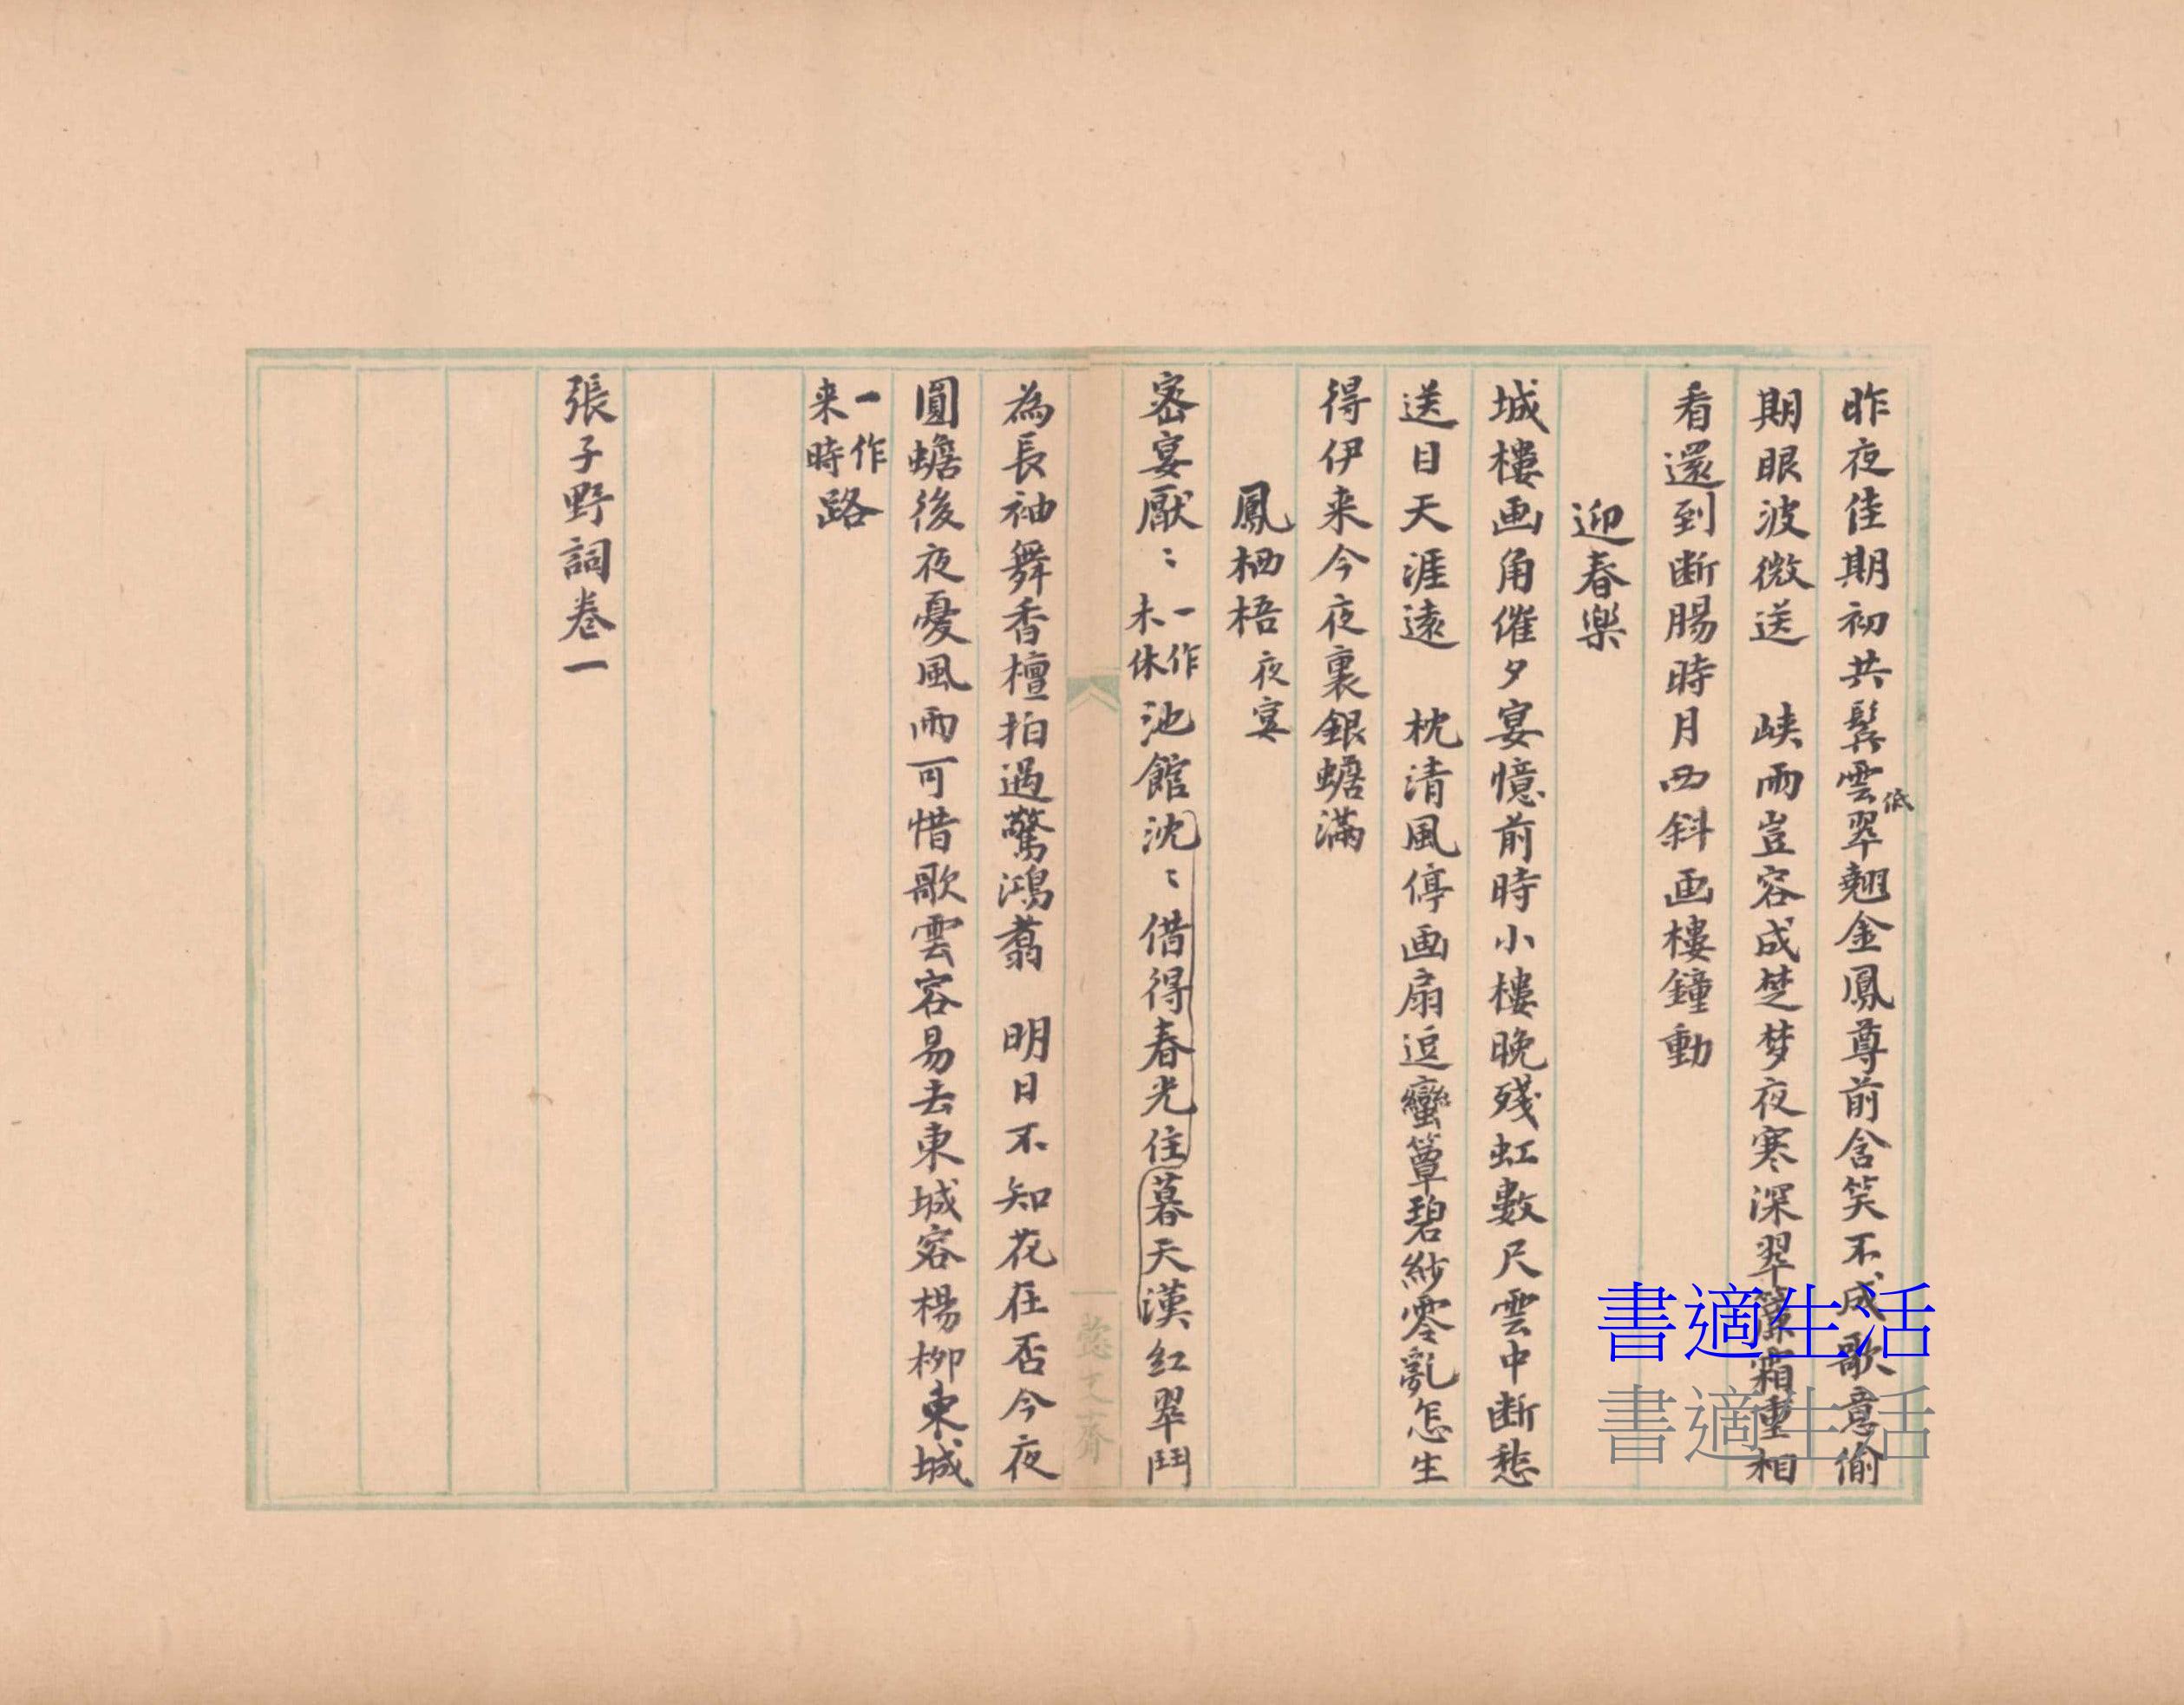 昨夜佳期初共髩雲低翠翹金鳳尊前含笑不成歌意偷
期眼波微送　峡雨豈容成楚梦夜寒深翠簾霜重相
看還到断腸時月西斜画樓鐘動
迎春樂
城樓画角催夕宴憶前時小樓晚殘虹數尺雲中断愁
送目天涯遠　枕清風停画扇逗蠻簟碧紗零亂怎生
得伊来今夜裏銀蟾滿
鳳栖梧 夜宴
密宴厭〻一作未休池館沈〻借得春光住暮天漢红翠鬥
為長袖舞香檀拍過驚鴻翥　明日不知花在否今夜
圓蟾後夜憂風雨可惜歌雲容易去東城容楊柳東城
一作来時路
張子野詞卷一
懿文齋
書適生活
書適生活